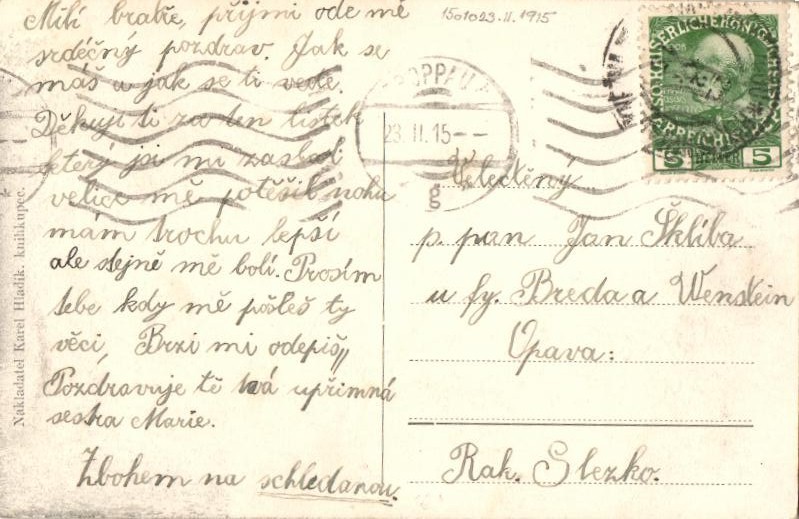 Milí bratře, přijmi ode mě
srdečný pozdrav. Jak se
máš a jak se ti vede.
Děkuji ti za ten lístek
který jsi mi zaslal
velice mě potěšil nohu
mám trochu lepší
ale stejně mě bolí. Prosím
tebe kdy mě pošleš ty
věci, Brzi mi odepiš,,
Pozdravuje tě tvá upřimná
sestra Marie.
Zbohem na schledanou.
1501023.II.1915
TROPPAU
23.II.15--
g
5 HELLER 5
Velectěný
p. pan Jan Šklíba
u fy. Breda a Wenstein
Opava:
Rak. Slezko.
Nakladatel Karel Hladík, knihkupec.